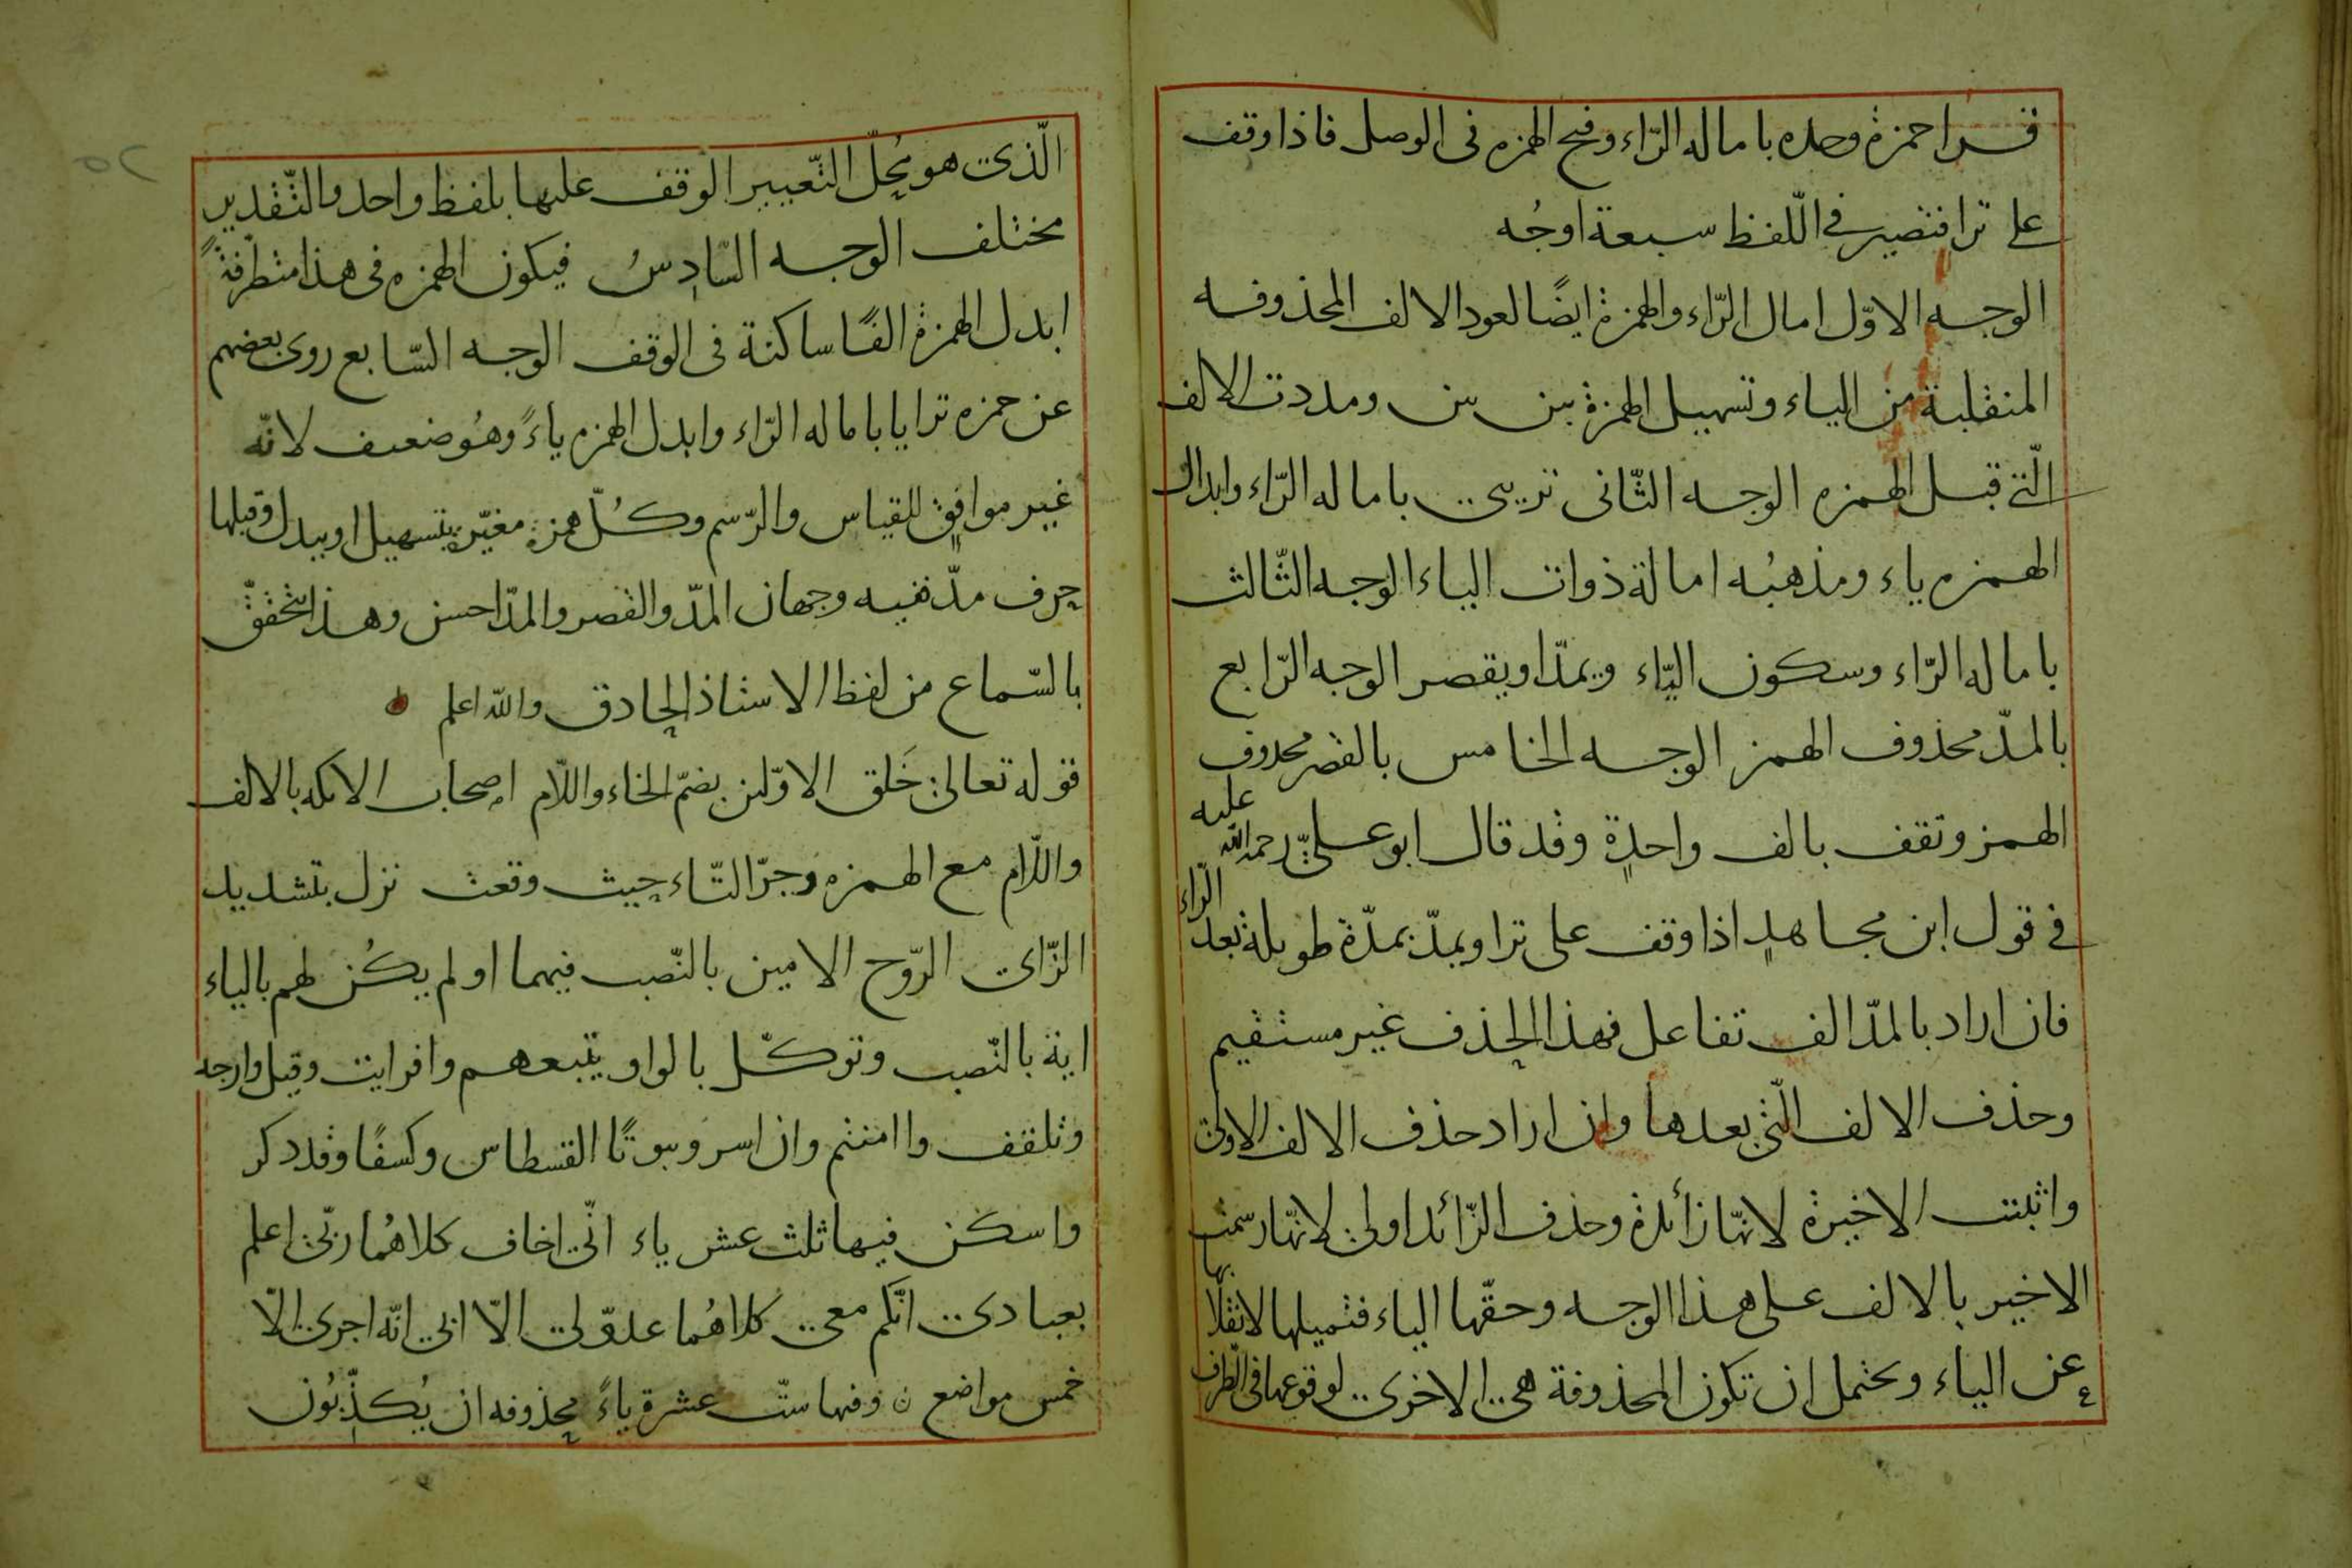 قرا حمزة وحده باماله الرّاء وفتح الهمزه فى الوصل فاذا وقف
على ترا فتصير في اللّفظ سبعة اوجُه
الوجه الاوّل امال الرّاء والهمزة ايضًا لعود الالف المحذوفه
المنقلبة من الياء وتسهيل الهمزة بين بين ومددت الالف
الّتى قبل الهمزه الوجه الثّانى تريى باماله الرّاء وابدال
الهمزه ياء ومذهبُه امالة ذوات الياء الوجه الثّالث
باماله الرّاء وسكون اليّاء ويمدّ او يقصر الوجه الرّابع
بالمدّ محذوف الهمز الوجه الخامس بالقصر محذوف
الهمز وتقف بالف واحدةٍ وقد قال ابو علىّ رحمة الله عليه
في قول ابن مجاهدٍ اذا وقف على ترا ويمدّ بمدّة طويلة بعد الرّاء
فان اراد بالمدّ الف تفاعل فهذا الحذف غير مستقيم
وحذف الالف الّتى بعدها وان اراد حذف الالف الاولى
واثبتت الاخيرة لانّها زائدة وحذف الزّائد اولى لانّها رسمت بها
الاخير بالالف على هذا الوجه وحقّها الياء فتميلها لانقلا
عن الياء ويحتمل ان تكون المحذوفة هى الاخرى لوقوعها فى الطّرف
الّذى هو محُلّ التّعيير الوقف عليها بلفظ واحد والتّقدير
مختلف الوجه السّادِسُ فيكون الهمزه فى هذا متطرّفةً
ابدل الهمزة الفًا ساكنة فى الوقف الوجه السّابع روى بعضهم
عن حمزه ترايا باماله الرّاء وابدل الهمزه ياءً وهُو ضعيف لانّه
غير موافقٍ للقياس والرّسم وكُلّ همزةٍ مغيّرةٍ بتسهيل او ببدل وقبلها
حرف مدّ ففيه وجهان المدّ والقصر والمدّ احسن وهذا يتحقّق
بالسّماع من لفظ الاستاذ الحادق والله اعلم
قوله تعالى خَلق الاوّلين بضمّ الخاء واللّام اصحاب الايكه بالالف
واللّام مع الهمزه وجرّ التّاء حيث وقعت نزل بتشديد
الزّاى الرّوح الامين بالنّصب فيهما اولم يكُن لهم بالياء
اية بالنّصب وتوكّل بالواو يتّبعهم وافرايت وقيل وارجه
وتلقف واامنتم وان اسر وبيوتًا القسطاس وكسفًا وقد ذكر
واسكن فيها ثلث عشر ياء انّى اخاف كلاهُما ربّى اعلم
بعبادى انّكم معى كلاهُما عدوّ لى الّا ابى انّه اجرى الّا
خمس مواضع وفيها ستّ عشرة ياءً محذوفه ان يُكذّبُون